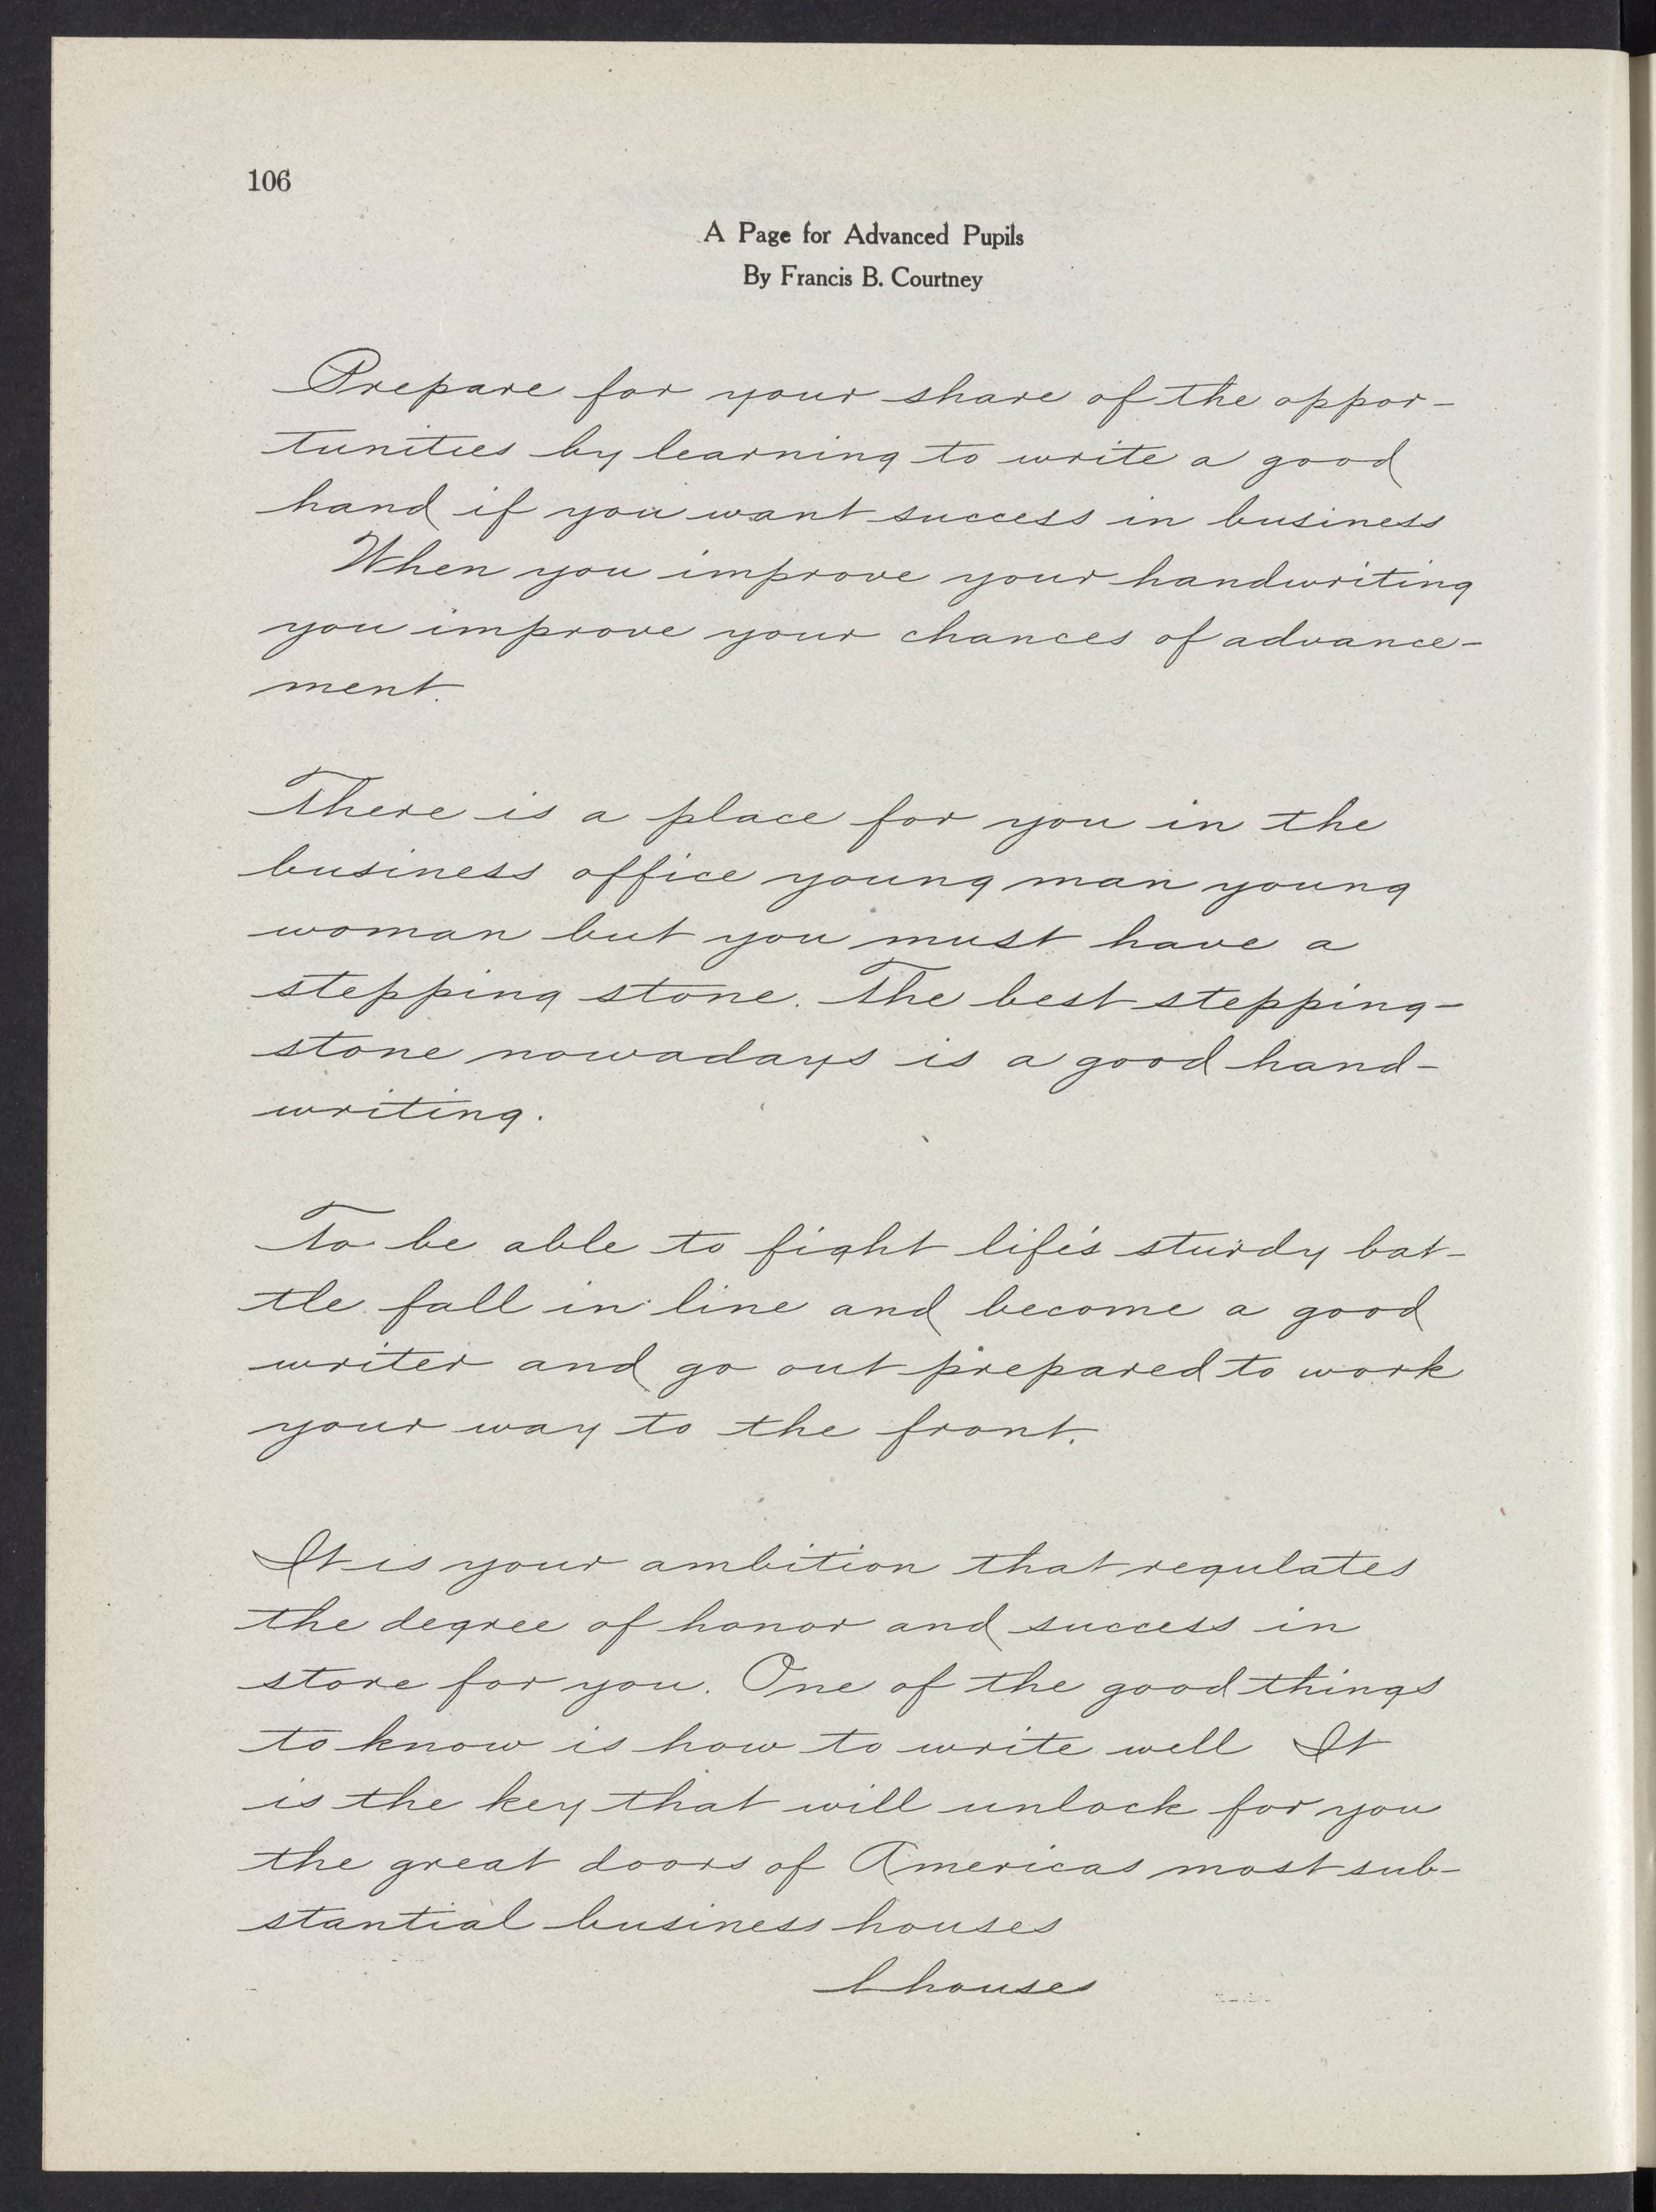 106
A Page for Advanced Pupils
By Francis B. Courtney
Prepare for your share of the oppor-
tunities by learning to write a good
hand if you want success in business
When you improve your handwriting
you improve your chances of advance-
ment.
There is a place for you in the
business office young man young
woman but you must have a
stepping stone. The best stepping-
stone nowadays is a good hand-
writing.
To be able to fight life's sturdy bat-
tle fall in line and become a good
writer and go out prepared to work
your way to the front.
It is your ambition that regulates
the degree of honor and success in
store for you. One of the good things
to know is how to write well It
is the key that will unlock for you
the great doors of Americas most sub-
stantial business houses
houses